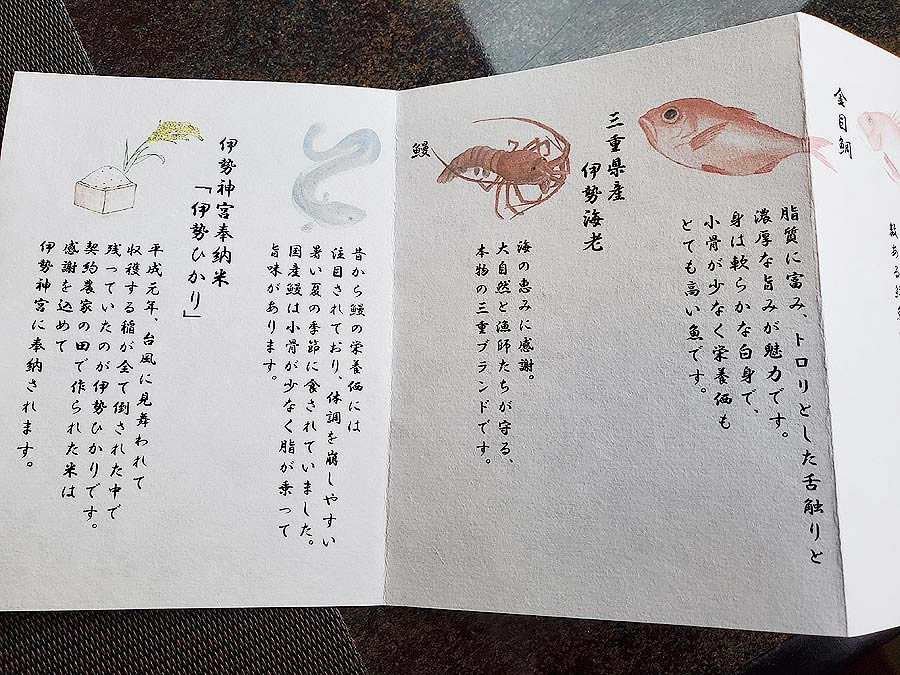 金目鯛
脂質に富み、トロリとした舌触りと
濃厚な旨みが魅力です。
身は軟らかな白身で、
小骨が少なく栄養価も
とても高い魚です。
三重県産
伊勢海老
海の恵みに感謝。
大自然と漁師たちが守る、
本物の三重ブランドです。
鰻
昔から鰻の栄養価には
注目されており、体調を崩しやすい
暑い夏の季節に食されていました。
国産鰻は小骨が少なく脂が乗って
旨味があります。
伊勢神宮奉納米
「伊勢ひかり」
平成元年、台風に見舞われて
収穫する稲が全て倒された中で
残っていたのが伊勢ひかりです。
契約農家の田で作られた米は
感謝を込めて
伊勢神宮に奉納されます。